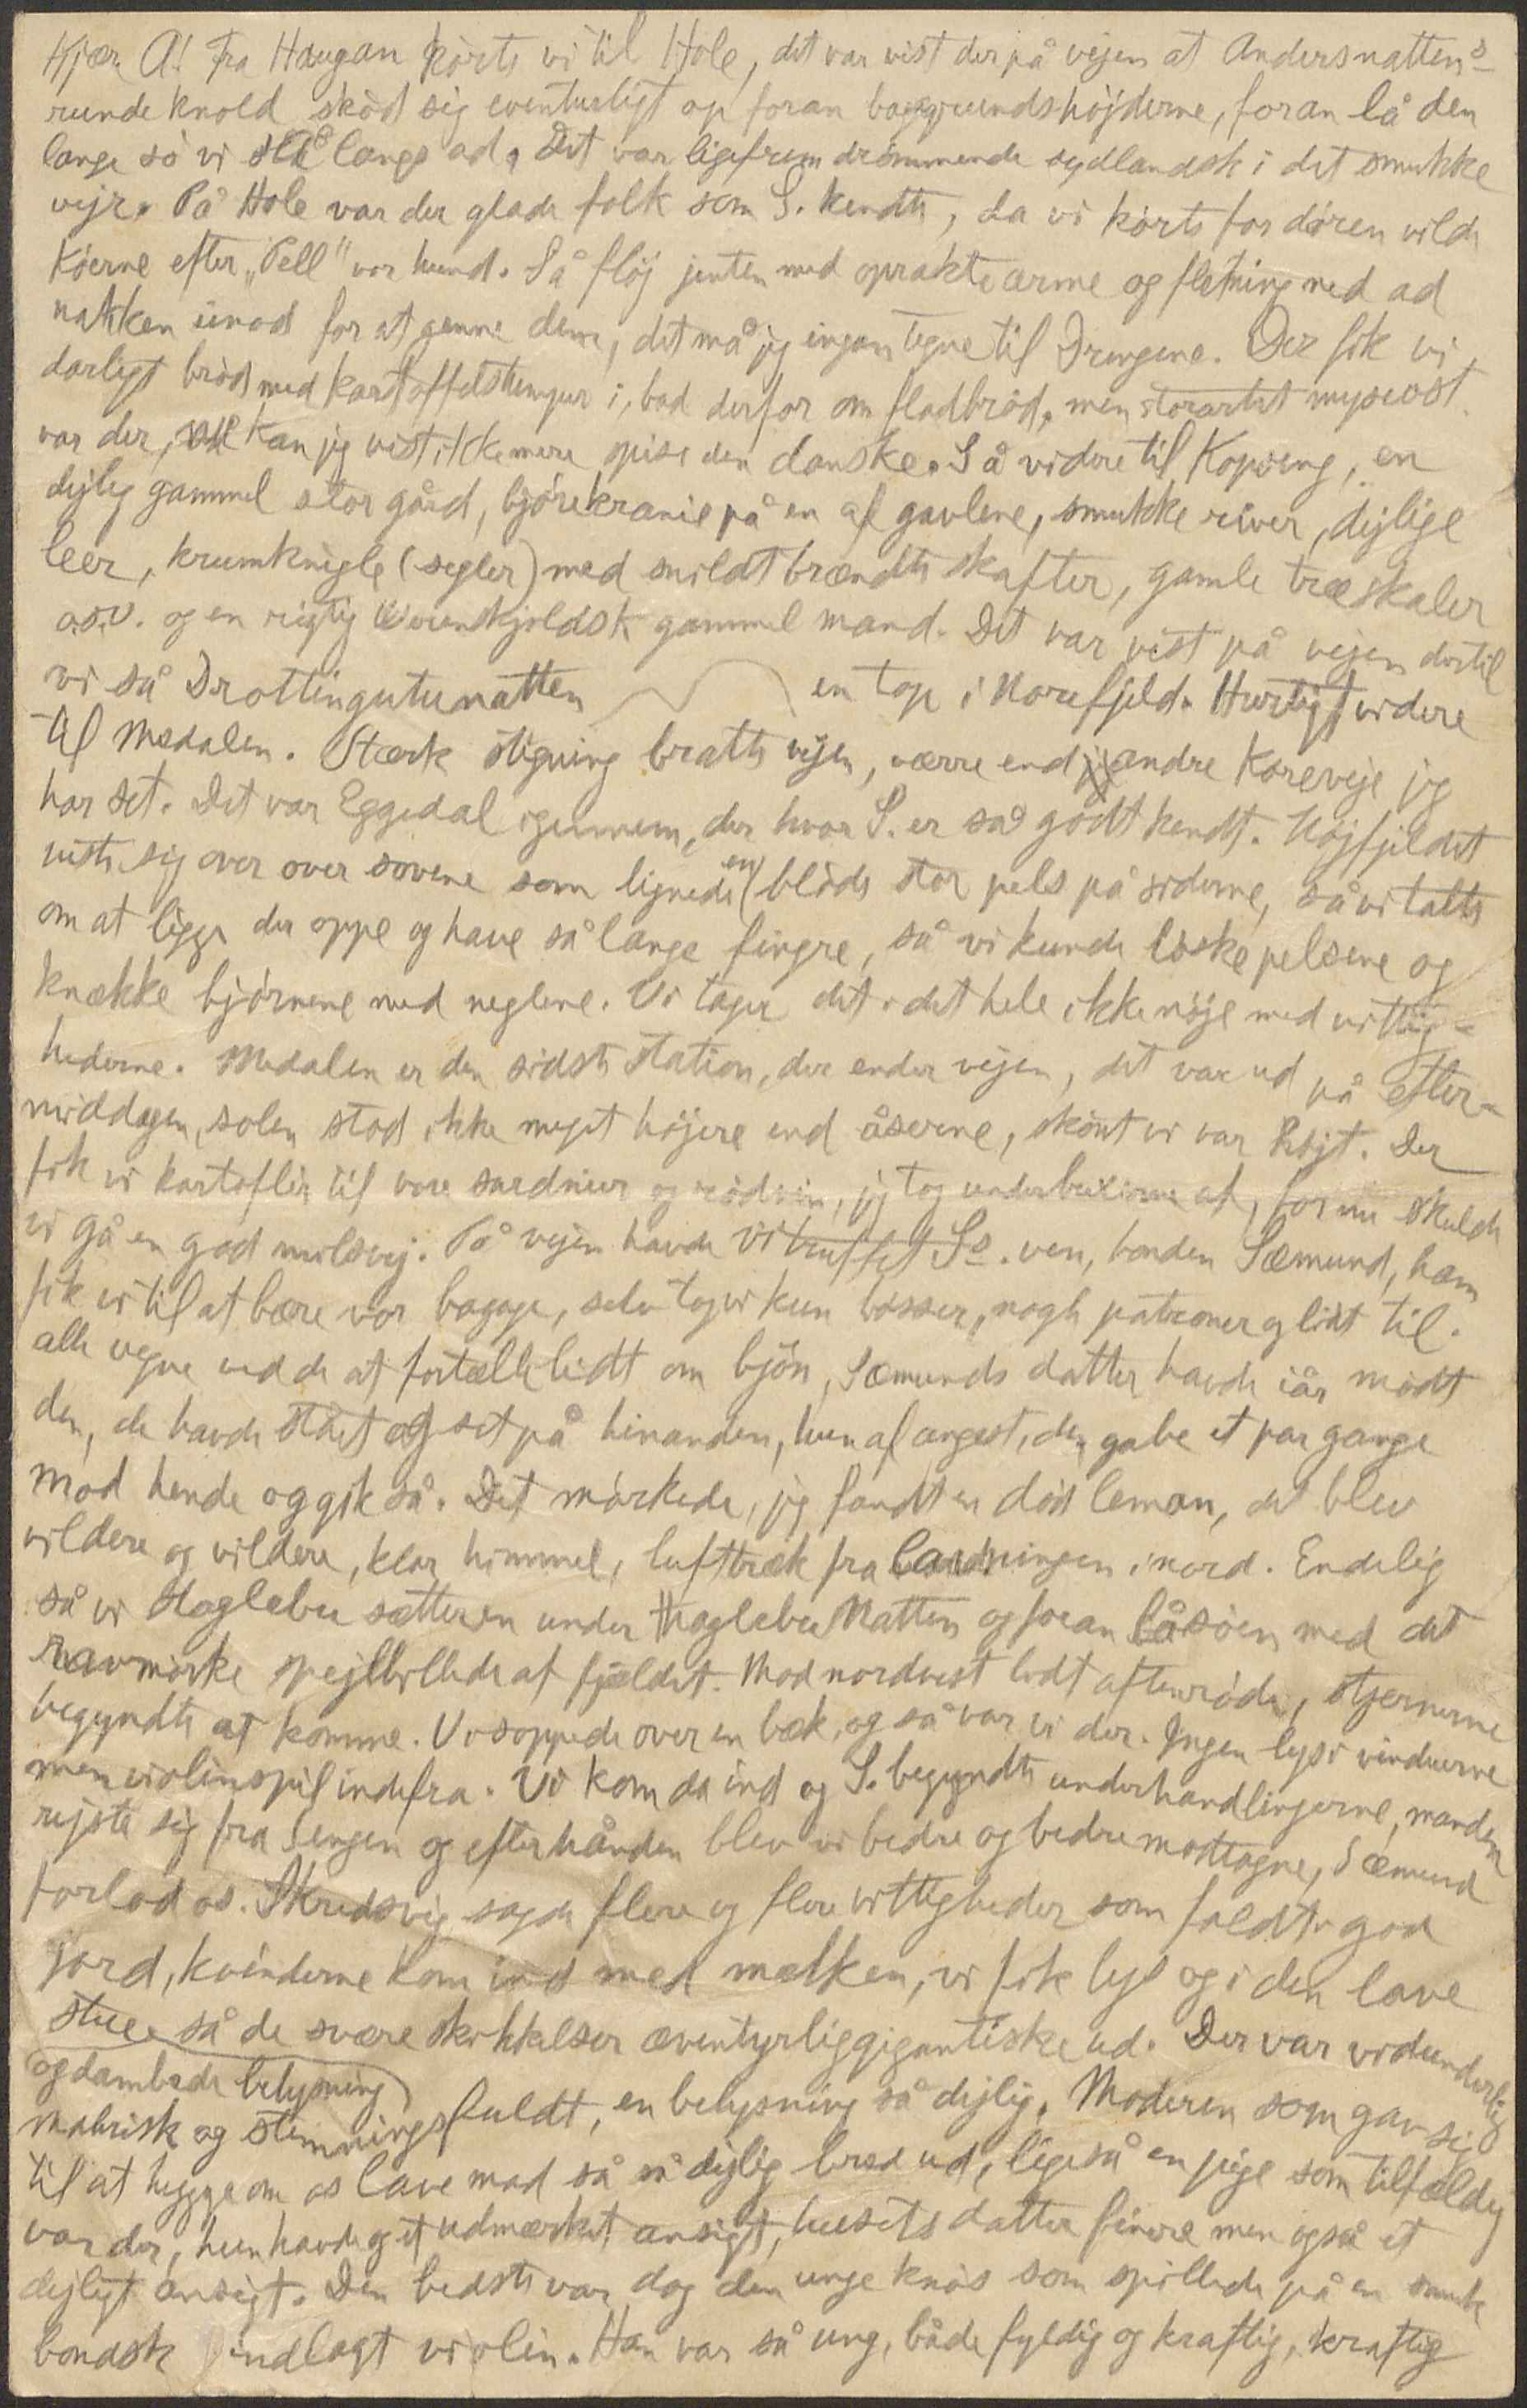 Kjære A! Fra Haugan kørte vi til Hole, det var vist der på vejen at Andersnattens
runde knold skød sig eventurligt op foran baggrundshøjderne, foran lå den
længe så vi den længe ad. Det var ligefrem drømmende sydlandsk i det smukke
vejr. På Hole var der glade folk som S. kendte, da vi kørte for døren vilde
Køerne efter "Pell" vor hund. Så fløj jenten med oprakte ærme og fletning ned ad
nakken imod for at genne dem, det må jeg engan tegne til Drengene. Der fik vi
dårligt brød med kartoffelstumper i, bad derfor om fladbrød, men storartet myseost
var der, nu kan jeg vist ikke mere spise den danske. Så videre til Kopseng, en
dejlig gammel stor gård, bjørnekranie på en af gavlene, smukke river, dejlige
leer, krumknigle (segler) med snildt brændte skafter, gamle træskaler
o.s.v. og en rigtig Werenskjoldsk gammel mand. Det var vist på vejen dertil
vi så Drottingutunatten en top i Norefjeld. Hurtigt videre
til Medalen. Stærk stigning bratte vejen, værre end andre køreveje jeg
har set. Det var Eggedal igennem, der hvor S. er så godt kendt. Højfjeldet
viste sig over over sovene som lignede en blöde stor pels på siderne, så vi talte
om at ligge der oppe og have så lange fingre, så vi kunde löske pelsene og
knække bjørnene med neglene. Vi tager det i det hele ikke nöje med vittig-
hederne. Medalen er den sidste station, der ender vejen, det var ud på efter-
middagen, solen stod ikke meget højere end åserne, skönt vi var højt. Der
fik vi kartofler til vore sardiner og rödvin, jeg tog underbuxerne af, for nu skulde
vi gå en god milsvej. På vejen havde vi truffet Ss. ven, bonden Sæmund, ham
fik vi til at bære vor bagage, selv tog vi kun bösser, nogle patroner og lidt til.
alle vegne vedde at fortælle lidt om bjön, Sæmunds datter havde iår mødt
den, de havde stået og set på hinanden, hun af angest, den gabe et par gange
mod hende og gik så. Det mörkede, jeg fandt en död leman, det blev
vildere og vildere, klar himmel, lufttræk fra lavningen i nord. Endelig
så vi Haglebu sætteren under Haglebu Natten og foran lå söen med det
ravmörke spejlbillede af fjeldet. Mod nordvest lidt aftenröde, stjernerne
begyndte at komme. Vi soppede over en bæk, og så var vi der. Ingen lys i vinduerne
men violinspil indefra. Vi kom da ind og S. begyndte underhandlingerne, manden
rejste sig fra Sengen og efterhånden blev vi bedre og bedre modtagne, Sæmund
forlod os. Skredsvig sagde flere og flere vittigheder som faldt i god
jord, kvinderne kom ind med mælken, vi fik lys og i den lave
stue så de svære skikkelser æventyrlig gigantiske ud. Der var vidunderlig
og dæmpede belysning
malerisk og stemningsfuldt, en belysning så dejlig. Moderen som gav sig
til at hygge om os lave mad så så dejlig bred ud, ligeså en pige som tilfældig
var der, hun havde og et udmærket ansigt, husets datter finere men også et
dejligt ansigt. Den bedste var dog den unge knös som spillede på en smuk
bondsk indlagt violin. Han var så ung, både fyldig og kraftig, kraftig